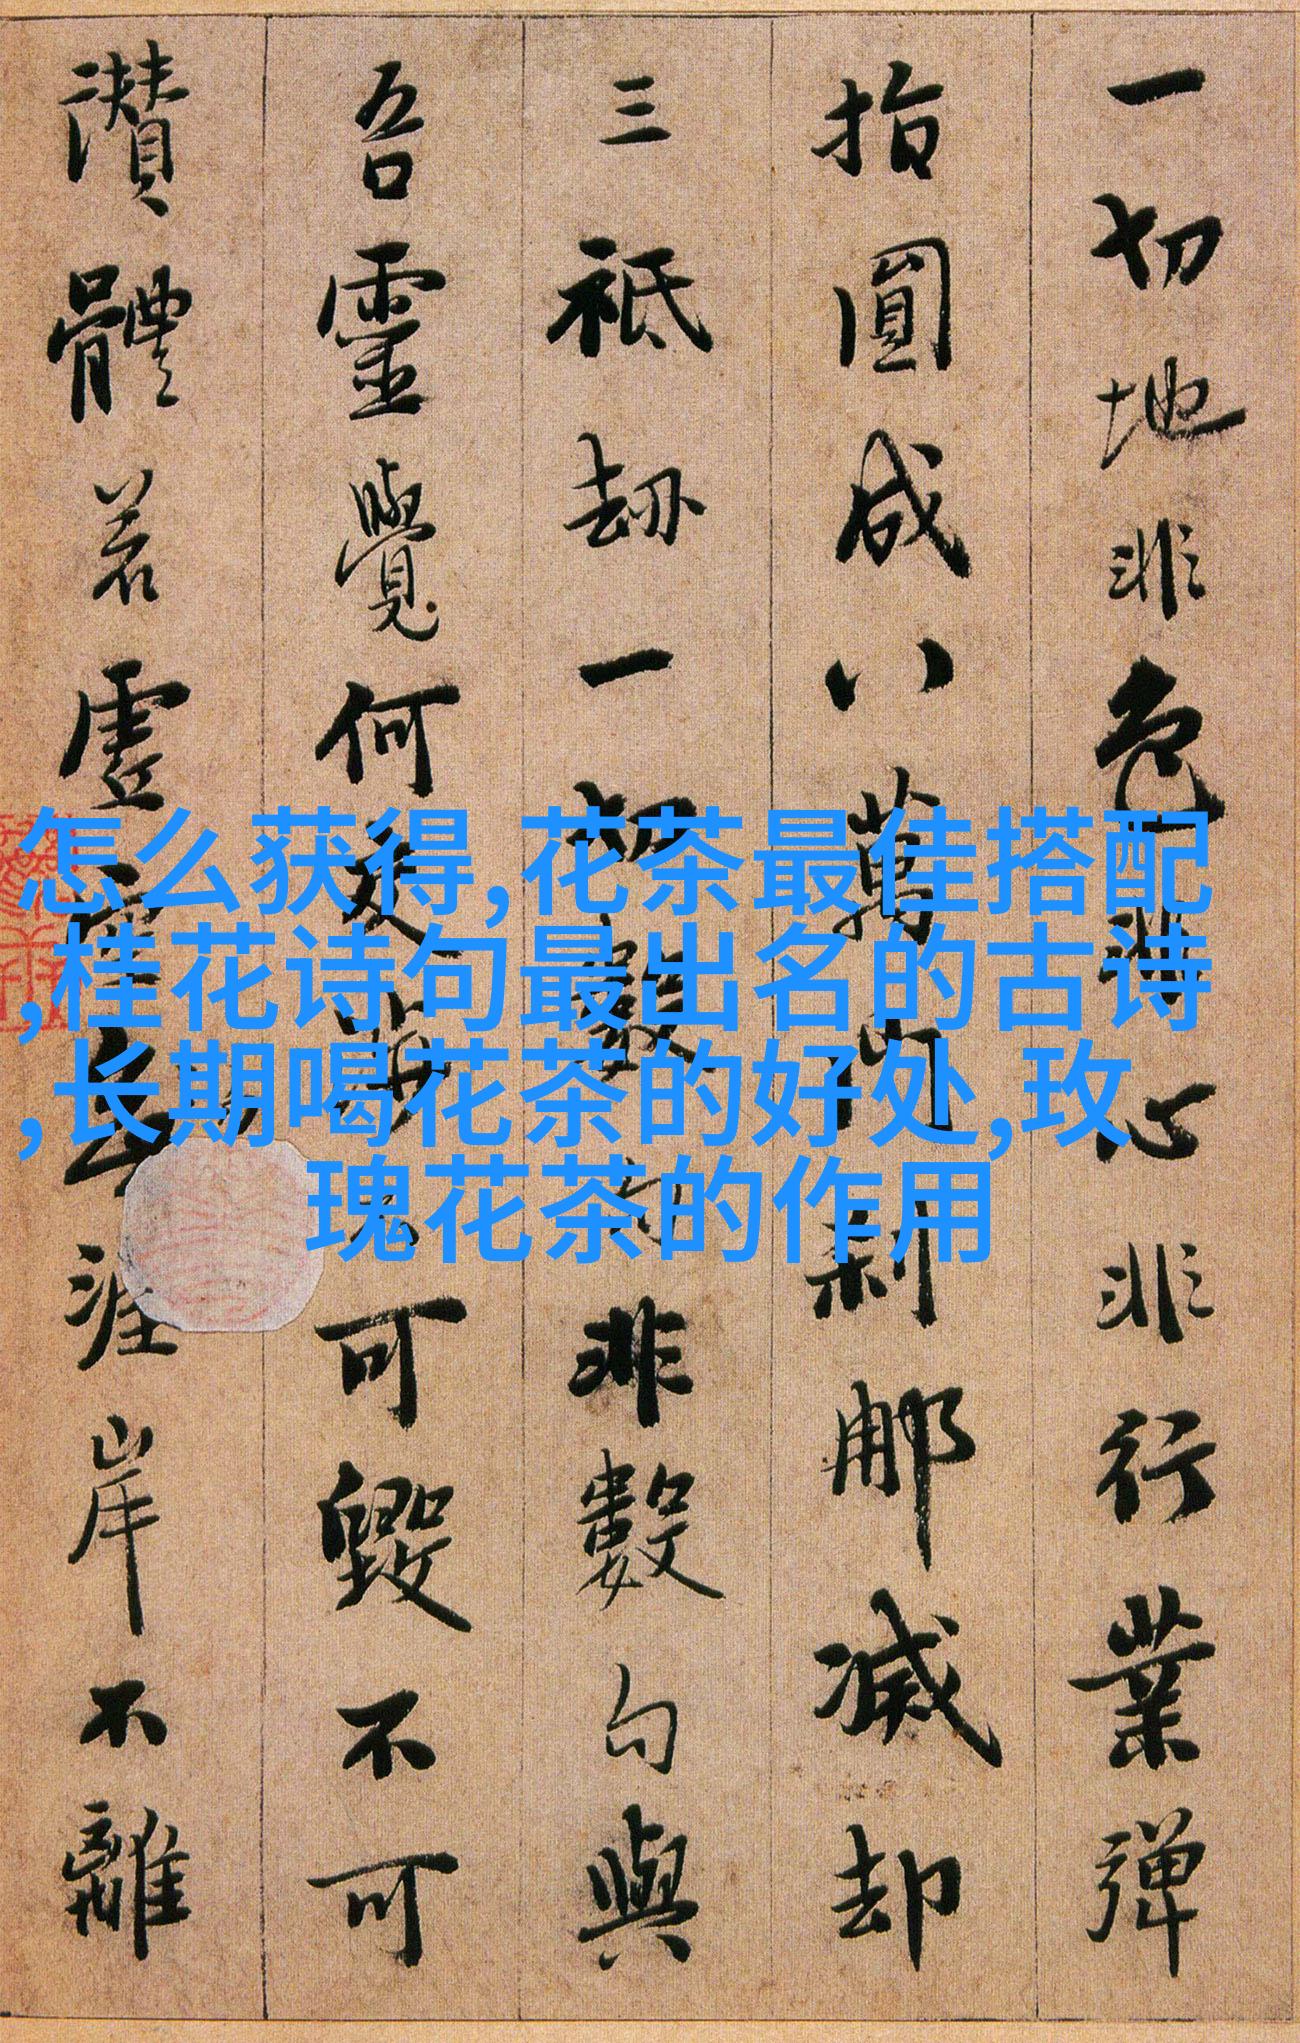 一切地非色非心非行業彈
指圓成八萬門刹那滅却
三祇劫一切數句非數句與
吾靈覺何交涉不可毀不可
讚體若虛空勿涯岸不離
怎么获得,花茶最佳搭配
,桂花诗句最出名的古诗
,长期喝花茶的好处,玫
瑰花茶的作用